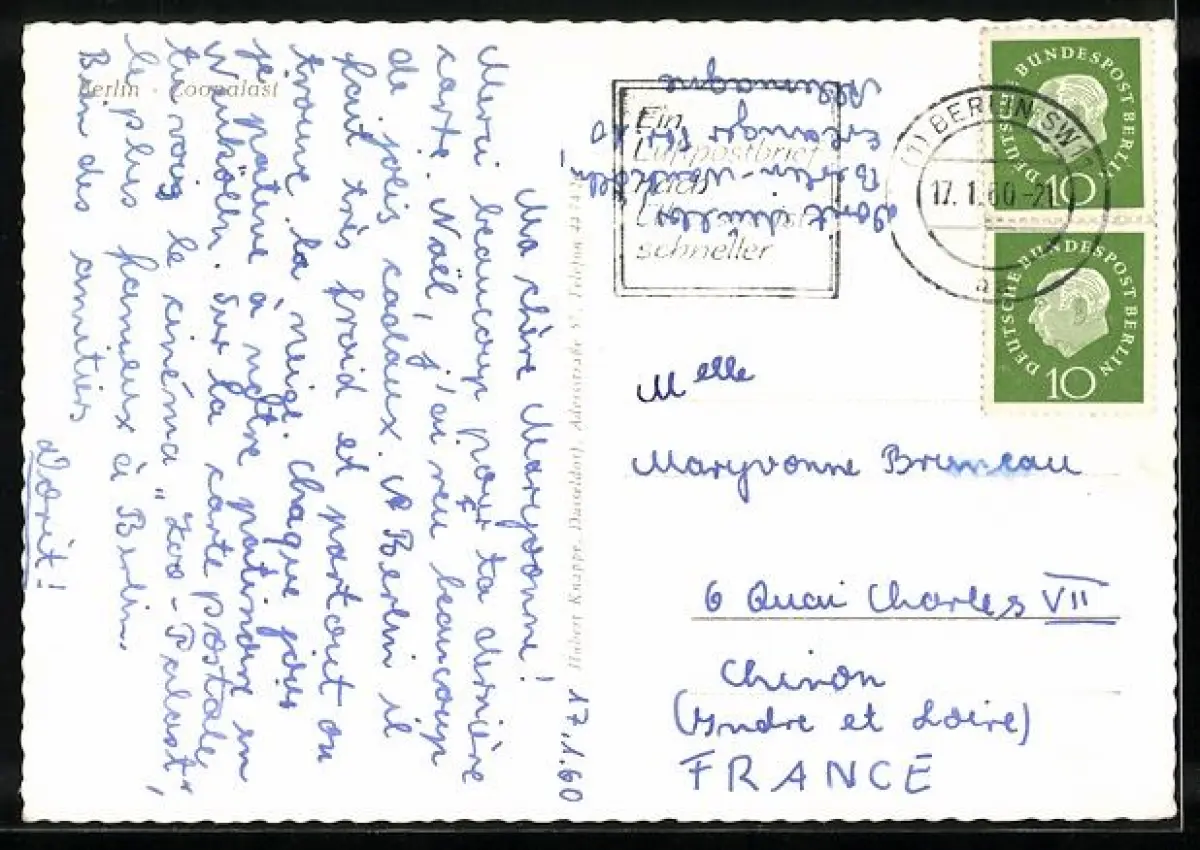 Berlin · Zoopalast
17.1.60
Ma chère Maryvonne!
Merci beaucoup pour ta dernière
carte. Noël, j'ai reu beaucoup
de jolis cadaux. A Berlin il
fait très froid et partout on
trouve la neige. Chaque jour
je patine à notre patinoire en
Neukölln. Sur la carte postale,
tu vois le cinéma "Zoo-Palast",
le plus fameux à Berlin.
Bien des amitiés
Dorit!
Hubert Knappe, Düsseldorf, Adersstraße 57, Telefon
Dorit
Berlin-
Erlanger Str. 10
Allemagne
Ein
Luftpostbrief
nach
schneller
(1) BERLIN SW
17.1.60-21
DEUTSCHE BUNDESPOST BERLIN
10
DEUTSCHE BUNDESPOST BERLIN
10
Melle
Maryvonne Bruneau
6 Quai Charles VII
Chinon
(Yndre et Loire)
FRANCE